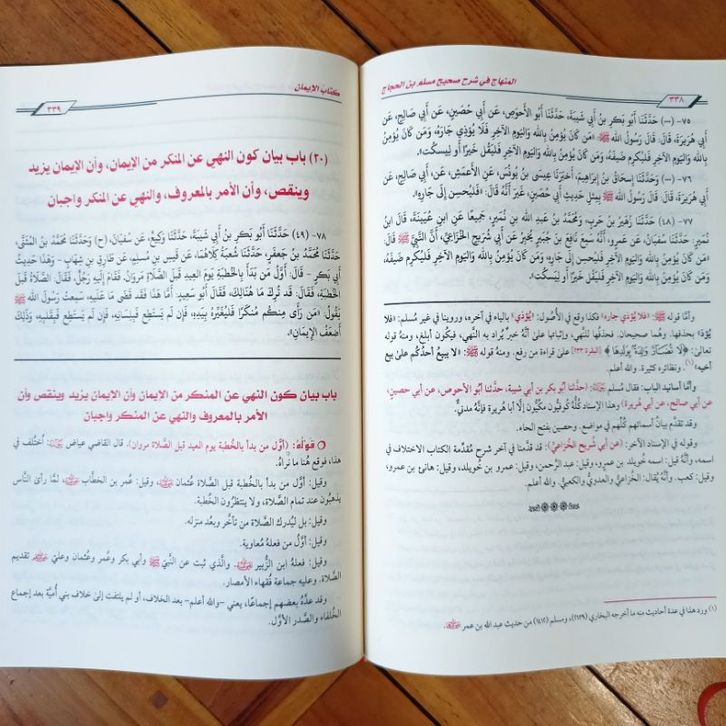 المنهاج في شرح صحيح مسلم بن الحجاج
٣٣٨
٧٥- (...) حَدَّثَنَا أَبُو بَكْرِ بنُ أَبِي شَيْبَةَ، حَدَّثَنَا أَبُو الأَحْوَصِ، عَنْ أَبِي حُصَيْنٍ، عَنْ أَبِي صَالِحٍ، عَنْ
أَبِي هُرَيْرَةَ، قَالَ: قَالَ رَسُولُ اللهِ ﷺ: «مَنْ كَانَ يُؤْمِنُ بِاللهِ وَاليَومِ الآخِرِ فَلَا يُؤْذِي جَارَهُ، وَمَن كَانَ يُؤْمِنُ
بِاللهِ وَاليَومِ الآخِرِ فَلْيُكْرِم ضَيفَهُ، وَمَن كَانَ يُؤْمِنُ بِاللهِ وَاليَومِ الآخِرِ فَلْيَقُل خَيرًا أَو لِيَسكُت».
٧٦- (...) وَحَدَّثَنَا إِسْحَاقُ بنُ إِبْرَاهِيمَ، أَخبَرَنَا عِيسَى بنُ يُونُسَ، عَنِ الأَعْمَشِ، عَن أَبِي صَالِحٍ، عَن
أَبِي هُرَيْرَةَ، قَالَ: قَالَ رَسُولُ اللهِ ﷺ بِمِثلِ حَدِيثِ أَبِي حُصَيْنٍ، غَيرَ أَنَّهُ قَالَ: «فَلْيُحسِن إِلَى جَارِهِ».
٧٧- (٤٨) حَدَّثَنَا زُهَيْرُ بنُ حَربٍ، وَمُحَمَّدُ بنُ عَبدِ اللهِ بنِ نُمَيرٍ، جَمِيعًا عَنِ ابنِ عُيَينَةَ، قَالَ ابنُ
نُمَيرٍ: حَدَّثَنَا سُفيَانُ، عَن عَمرٍو، أَنَّهُ سَمِعَ نَافِعَ بنَ جُبَيرٍ يُخبِرُ عَن أَبِي شُرَيحٍ الخُزَاعِيِّ، أَنَّ النَّبِيَّ ﷺ قَالَ:
«مَن كَانَ يُؤمِنُ بِاللهِ وَاليَومِ الآخِرِ فَلْيُحسِن إِلَى جَارِهِ، وَمَن كَانَ يُؤمِنُ بِاللهِ وَاليَومِ الآخِرِ فَلْيُكرِم ضَيفَهُ،
وَمَن كَانَ يُؤمِنُ بِاللهِ وَاليَومِ الآخِرِ فَلْيَقُل خَيرًا أَو لِيَسكُت».
وأمَّا قوله ﷺ: «فلا يُؤذي جاره» فكذا وقع في الأُصول: «يُؤذي» بالياء في آخره، وروينا في غير مُسلم: «فلا
يُؤذِ» بحذفها. وهما صحيحان: فحذفُها للنَّهي، وإثباتها على أنَّه خبرٌ يُراد به النَّهي، فيكون أبلغ، ومنهُ قوله
تعالى: ﴿لَا تُضَارُّ وَالِدَةٌ بِوَلَدِهَا﴾ [البقرة ٢٣٣] على قراءة من رفع. ومنهُ قوله ﷺ: «لا يبيعُ أحدُكُم على بيع
أخيه»(١). ونظائره كثيرة. والله أعلم.
وأمَّا أسانيد الباب: فقال مُسلم: (حدَّثنا أبُو بكر بن أبي شيبة، حدَّثنا أبُو الأحوص، عن أبي حصين،
عن أبي صالح، عن أبي هُريرة) وهذا الإسناد كُلُّه كُوفيُّون مكِّيُّون إلَّا أبا هُريرة فإنَّهُ مدنيٌّ.
وقد تقدَّم بيانُ أسمائهم كُلِّهم في مواضعه. وحصين بفتح الحاء.
وقوله في الإسناد الآخر: (عن أبي شُريح الخُزاعيِّ): قد قدَّمنا في آخر شرح مُقدِّمة الكتاب الاختلاف في
اسمه، وأنَّه قيل: اسمه خُويلد بن عمرو، وقيل: عبد الرَّحمن، وقيل: عمرو بن خُويلد، وقيل: هانئ بن عمرو،
وقيل: كعب. وأنَّه يُقال: الخُزاعيُّ والعدويُّ والكعبيُّ. والله أعلم.
(١) ورد هذا في عدة أحاديث منه ما أخرجه البخاري (٢١٣٩)، ومسلم (١٤١٢) من حديث عبد الله بن عمر
كتاب الإيمان
٣٣٩
(٢٠) باب بيان كون النهي عن المنكر من الإيمان، وأن الإيمان يزيد
وينقص، وأن الأمر بالمعروف، والنهي عن المنكر واجبان
٧٨- (٤٩) حَدَّثَنَا أَبُو بَكرِ بنُ أَبِي شَيبَةَ، حَدَّثَنَا وَكِيعٌ، عَن سُفيَانَ، (ح) وَحَدَّثَنَا مُحَمَّدُ بنُ المُثَنَّى،
حَدَّثَنَا مُحَمَّدُ بنُ جَعفَرٍ، حَدَّثَنَا شُعبَةُ كِلَاهُمَا، عَن قَيسِ بنِ مُسلِمٍ، عَن طَارِقِ بنِ شِهَابٍ - وَهَذَا حَدِيثُ
أَبِي بَكرٍ - قَالَ: أَوَّلُ مَن بَدَأَ بِالخُطبَةِ يَومَ العِيدِ قَبلَ الصَّلَاةِ مَروَانُ، فَقَامَ إِلَيهِ رَجُلٌ، فَقَالَ: الصَّلَاةُ قَبلَ
الخُطبَةِ، فَقَالَ: قَد تُرِكَ مَا هُنَالِكَ، فَقَالَ أَبُو سَعِيدٍ: أَمَّا هَذَا فَقَد قَضَى مَا عَلَيهِ، سَمِعتُ رَسُولَ اللهِ ﷺ
يَقُولُ: «مَن رَأَى مِنكُم مُنكَرًا فَلْيُغَيِّرهُ بِيَدِهِ، فَإِن لَم يَستَطِع فَبِلِسَانِهِ، فَإِن لَم يَستَطِع فَبِقَلبِهِ، وَذَلِكَ
أَضعَفُ الإِيمَانِ».
باب بيان كون النهي عن المنكر من الإيمان وأن الإيمان يزيد وينقص وأن
الأمر بالمعروف والنهي عن المنكر واجبان
قولُهُ: (أوَّل من بدأ بالخُطبة يوم العيد قبل الصَّلاة مروان). قال القاضي عياض: اختُلف في
هذا، فوقع هُنا ما نراهُ.
وقيل: أوَّل من بدأ بالخُطبة قبل الصَّلاة عُثمان، وقيل: عُمر بن الخطَّاب، لمَّا رأى النَّاس
يذهبُون عند تمام الصَّلاة، ولا ينتظرُون الخُطبة.
وقيل: بل ليُدرك الصَّلاة من تأخَّر وبعُد منزله.
وقيل: أوَّلُ من فعلهُ مُعاوية.
وقيل: فعلهُ ابن الزُّبير. والَّذي ثبت عن النَّبيِّ ﷺ وأبي بكر وعُمر وعُثمان وعليّ تقديم
الصَّلاة. وعليه جماعة فُقهاء الأمصار.
وقد عدَّهُ بعضهم إجماعًا، يعني -والله أعلم- بعد الخلاف، أو لم يلتفت إلى خلاف بني أُميَّة بعد إجماع
الخُلفاء والصَّدر الأوَّل.